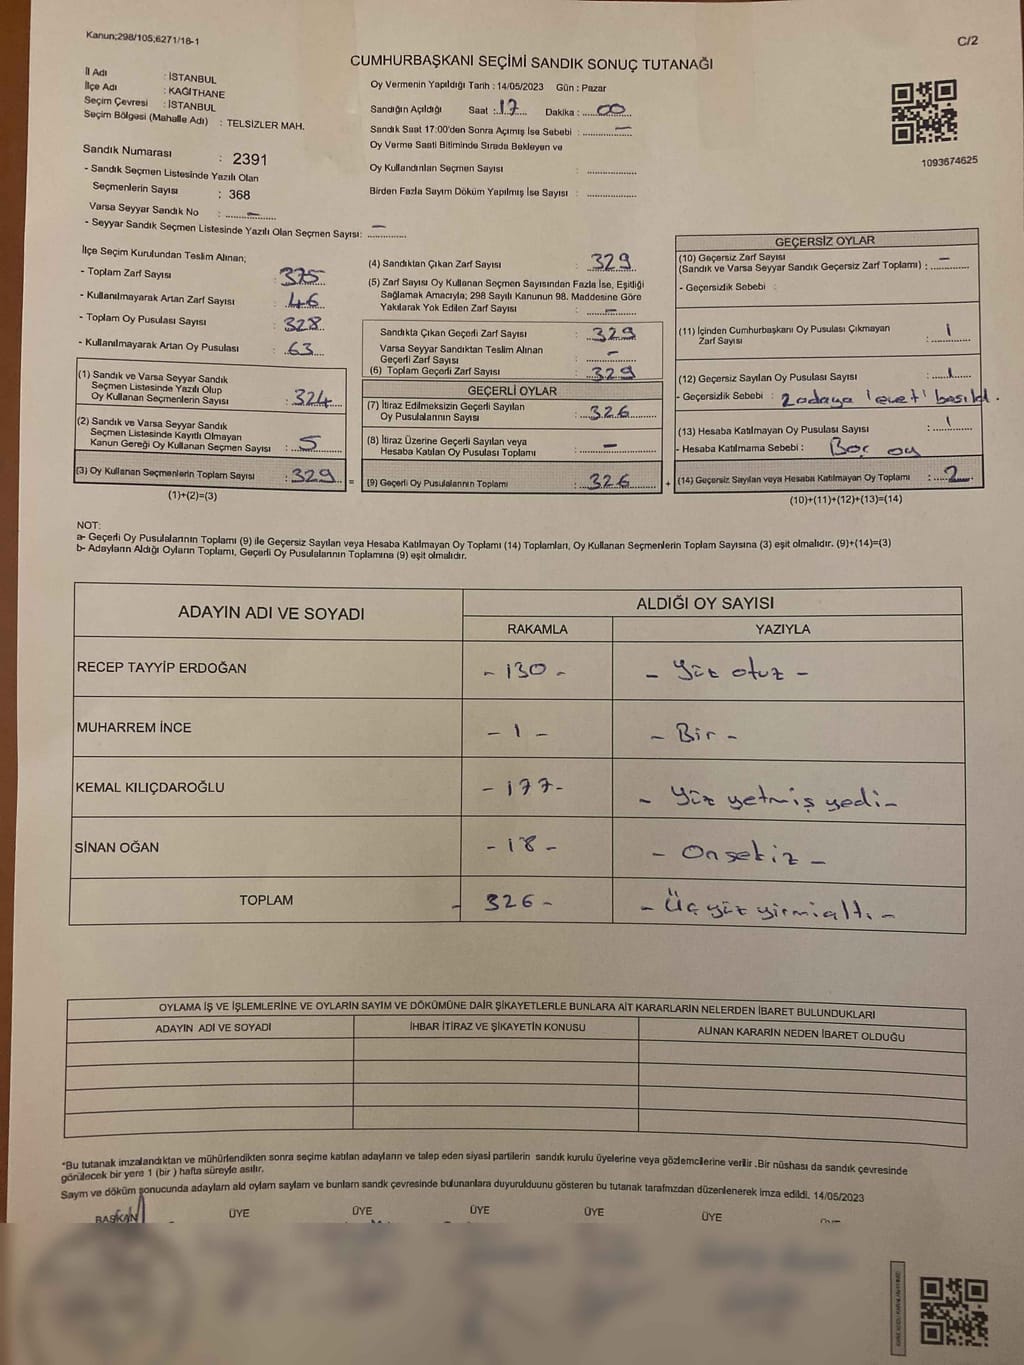 Kanun;298/105;6271/18-1
C/2
CUMHURBAŞKANI SEÇİMİ SANDIK SONUÇ TUTANAĞI
İl Adı : İSTANBUL
İlçe Adı : KAĞITHANE
Seçim Çevresi : İSTANBUL
Seçim Bölgesi (Mahalle Adı) : TELSİZLER MAH.
Sandık Numarası : 2391
- Sandık Seçmen Listesinde Yazılı Olan
Seçmenlerin Sayısı : 368
Varsa Seyyar Sandık No : –
- Seyyar Sandık Seçmen Listesinde Yazılı Olan Seçmen Sayısı: –
Oy Vermenin Yapıldığı Tarih : 14/05/2023 Gün : Pazar
Sandığın Açıldığı Saat : 17 Dakika : 00
Sandık Saat 17:00'den Sonra Açımış İse Sebebi : –
Oy Verme Saati Bitiminde Sırada Bekleyen ve
Oy Kullandırılan Seçmen Sayısı :
Birden Fazla Sayım Döküm Yapılmış İse Sayısı :
1093674625
İlçe Seçim Kurulundan Teslim Alınan;
- Toplam Zarf Sayısı : 375
- Kullanılmayarak Artan Zarf Sayısı : 46
- Toplam Oy Pusulası Sayısı : 328
- Kullanılmayarak Artan Oy Pusulası : 63
(1) Sandık ve Varsa Seyyar Sandık
Seçmen Listesinde Yazılı Olup
Oy Kullanan Seçmenlerin Sayısı : 324
(2) Sandık ve Varsa Seyyar Sandık
Seçmen Listesinde Kayıtlı Olmayan
Kanun Gereği Oy Kullanan Seçmen Sayısı : 5
(3) Oy Kullanan Seçmenlerin Toplam Sayısı : 329 =
(1)+(2)=(3)
(4) Sandıktan Çıkan Zarf Sayısı : 329
(5) Zarf Sayısı Oy Kullanan Seçmen Sayısından Fazla İse, Eşitliği
Sağlamak Amacıyla; 298 Sayılı Kanunun 98. Maddesine Göre
Yakılarak Yok Edilen Zarf Sayısı : –
Sandıkta Çıkan Geçerli Zarf Sayısı : 329
Varsa Seyyar Sandıktan Teslim Alınan
Geçerli Zarf Sayısı : –
(6) Toplam Geçerli Zarf Sayısı : 329
GEÇERLİ OYLAR
(7) İtiraz Edilmeksizin Geçerli Sayılan
Oy Pusulalarının Sayısı : 326
(8) İtiraz Üzerine Geçerli Sayılan veya
Hesaba Katılan Oy Pusulası Toplamı : –
(9) Geçerli Oy Pusulalarının Toplamı : 326 +
GEÇERSİZ OYLAR
(10) Geçersiz Zarf Sayısı
(Sandık ve Varsa Seyyar Sandık Geçersiz Zarf Toplamı) : –
- Geçersizlik Sebebi :
(11) İçinden Cumhurbaşkanı Oy Pusulası Çıkmayan
Zarf Sayısı : 1
(12) Geçersiz Sayılan Oy Pusulası Sayısı : 1
- Geçersizlik Sebebi : 2 adaya 'evet' basıldı.
(13) Hesaba Katılmayan Oy Pusulası Sayısı : 1
- Hesaba Katılmama Sebebi : Boş oy
(14) Geçersiz Sayılan veya Hesaba Katılmayan Oy Toplamı : 2
(10)+(11)+(12)+(13)=(14)
NOT:
a- Geçerli Oy Pusulalarının Toplamı (9) ile Geçersiz Sayılan veya Hesaba Katılmayan Oy Toplamı (14) Toplamları, Oy Kullanan Seçmenlerin Toplam Sayısına (3) eşit olmalıdır. (9)+(14)=(3)
b- Adayların Aldığı Oyların Toplamı, Geçerli Oy Pusulalarının Toplamına (9) eşit olmalıdır.
ADAYIN ADI VE SOYADI ALDIĞI OY SAYISI
RAKAMLA YAZIYLA
RECEP TAYYİP ERDOĞAN - 130 - - Yüz otuz -
MUHARREM İNCE - 1 - - Bir -
KEMAL KILIÇDAROĞLU - 177 - - Yüz yetmiş yedi -
SİNAN OĞAN - 18 - - Onsekiz -
TOPLAM - 326 - - Üç yüz yirmialtı -
OYLAMA İŞ VE İŞLEMLERİNE VE OYLARIN SAYIM VE DÖKÜMÜNE DAİR ŞİKAYETLERLE BUNLARA AİT KARARLARIN NELERDEN İBARET BULUNDUKLARI
ADAYIN ADI VE SOYADI İHBAR İTİRAZ VE ŞİKAYETİN KONUSU ALINAN KARARIN NEDEN İBARET OLDUĞU
*Bu tutanak imzalandıktan ve mühürlendikten sonra seçime katılan adayların ve talep eden siyasi partilerin sandık kurulu üyelerine veya gözlemcilerine verilir .Bir nüshası da sandık çevresinde
görülecek bir yere 1 (bir ) hafta süreyle asılır.
Sayım ve döküm sonucunda adayların ald oyların sayları ve bunların sandk çevresinde bulunanlara duyurulduunu gösteren bu tutanak tarafmzdan düzenlenerek imza edildi. 14/05/2023
BAŞKAN ÜYE ÜYE ÜYE ÜYE ÜYE